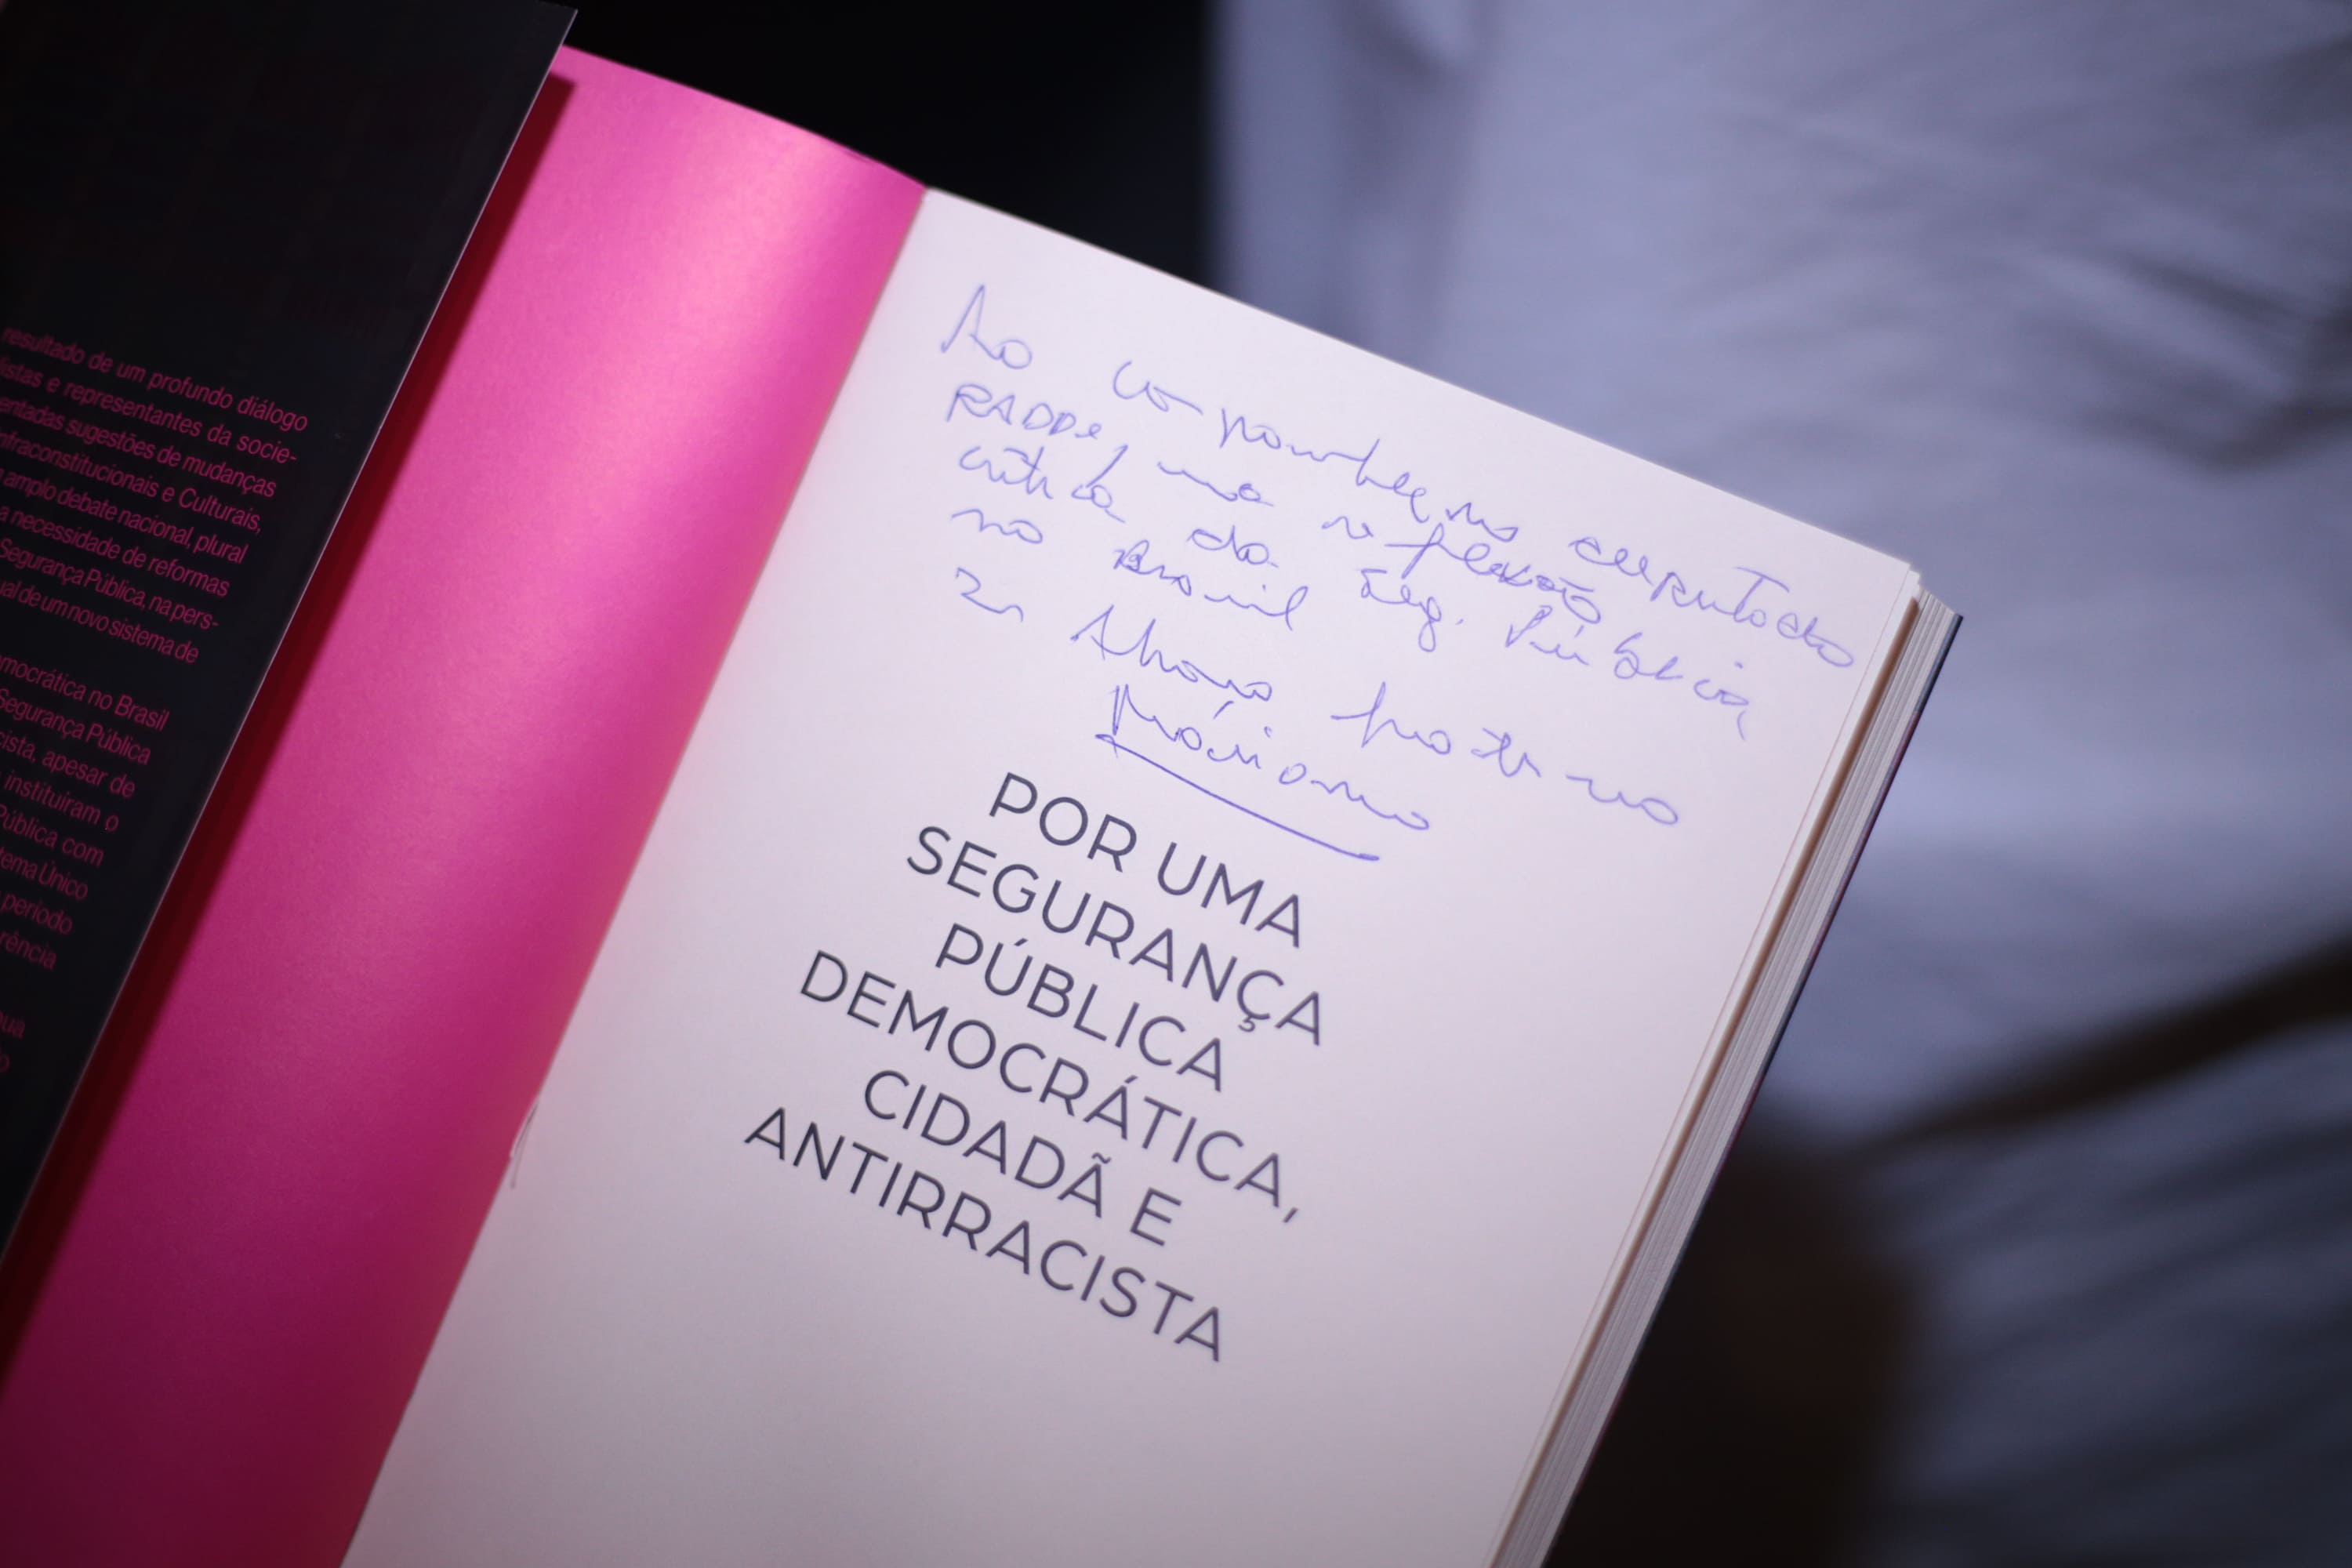 resultado de um profundo diálogo
istas e representantes da socie-
entadas sugestões de mudanças
nfraconstitucionais e Culturais,
amplo debate nacional, plural
a necessidade de reformas
Segurança Pública, na pers-
ual de um novo sistema de
mocrática no Brasil
Segurança Pública
cista, apesar de
instituíram o
Pública com
tema Único
período
rência
Ao companheiro deputado
RADDE, uma reflexão
crítica da Seg. Pública
no Brasil
Abraço fraterno
POR UMA
SEGURANÇA
PÚBLICA
DEMOCRÁTICA,
CIDADÃ E
ANTIRRACISTA